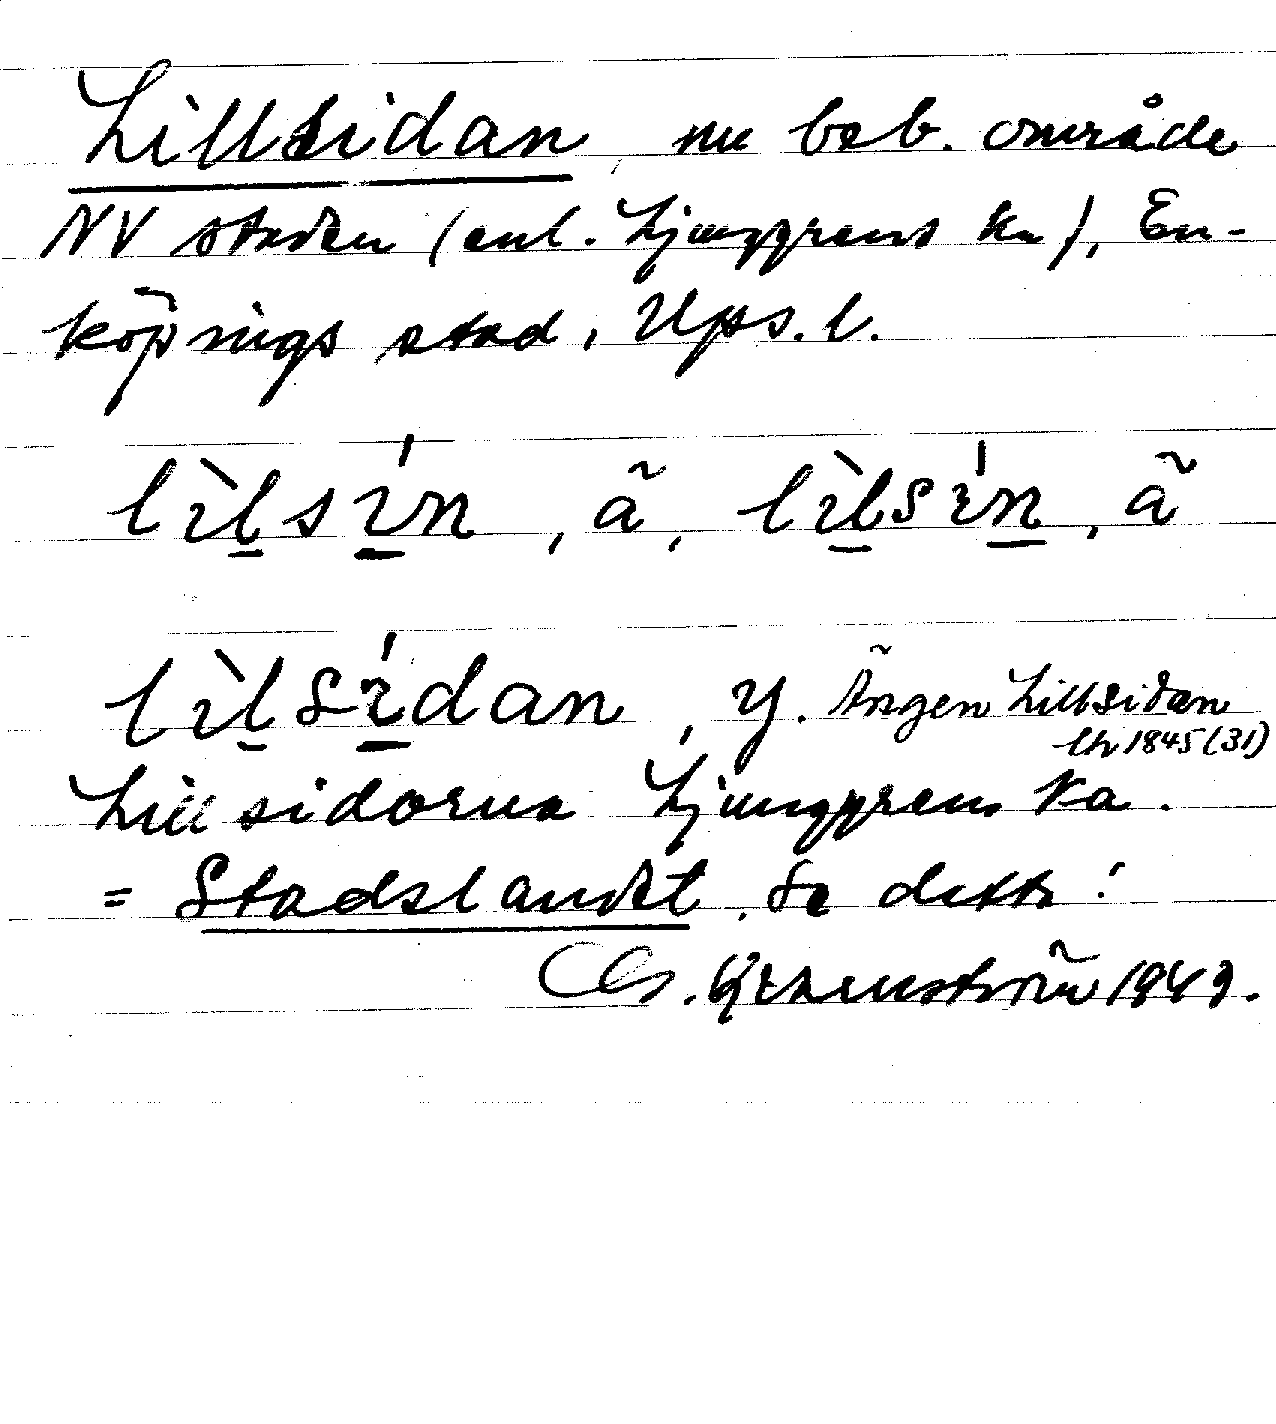 Lillsidan, nu beb. område
NV staden (enl. Ljunggrens ka), En-
köpings stad, Ups. l.
lìlsín, ã, lìlsín, ã
lìlsídan, y. Ängen Lillsidan
Lh 1845 (31)
Lillsidorna Ljunggrens Ka.
= Stadslandet, se detta!
Cls. 1949.